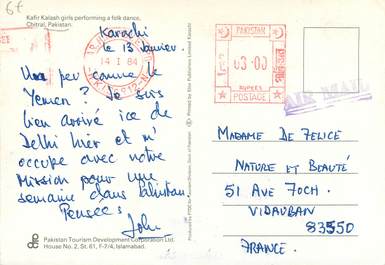 6f
Kafir Kalash girls performing a folk dance,
Chitral, Pakistan.
Karachi
le 13 Janvier.
Un peu comme le
Yemen? Je suis
bien arrivé ice de
Delhi hier et m'
occupe avec notre
Mission pour une
semaine dans Pakistan.
Pensées
John
Pakistan Tourism Development Corporation Ltd.
House No. 2, St. 61, F-7/4, Islamabad.
14 I 84
PAKISTAN
03.00
RUPEES
POSTAGE
AIR MAIL
MADAME DE FELICE
NATURE ET BEAUTÉ
51 AVE FOCH.
VIDAUBAN
83550
FRANCE.